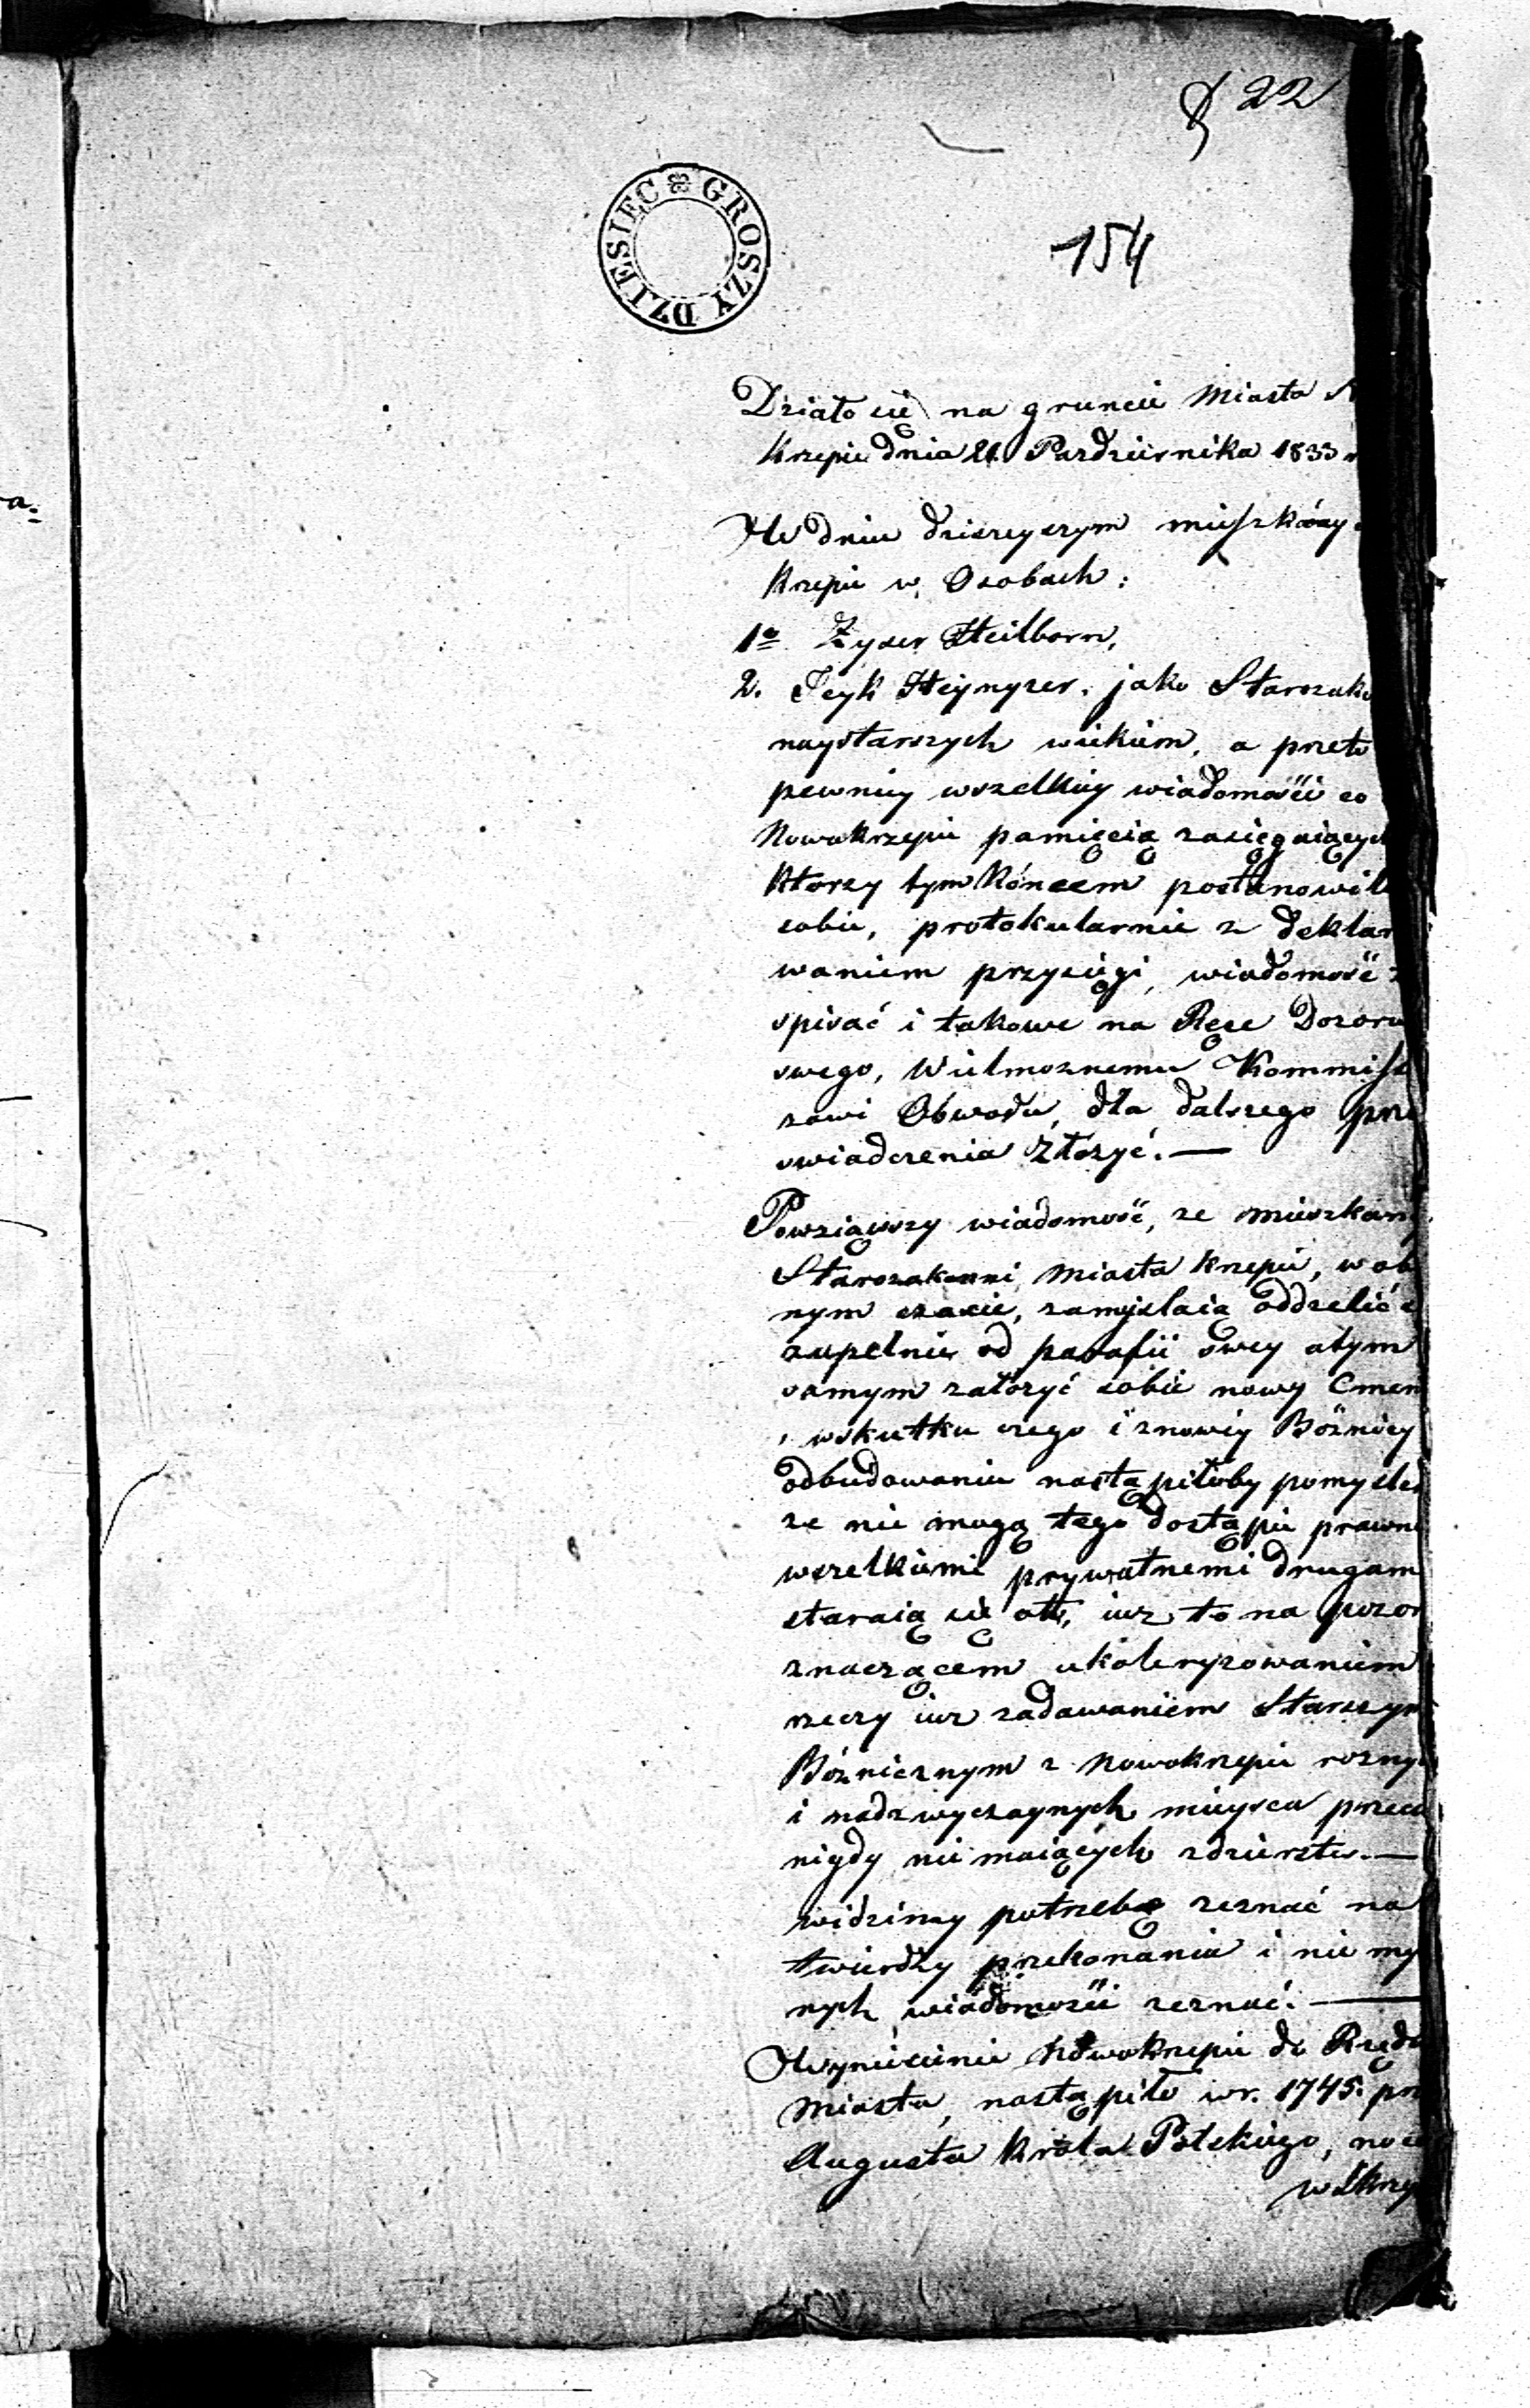 22
DZIESIEC GROSZY
154
Działo się na gruncie Miasta
Krzepic dnia 21. Pazdziernika 1833
W dniu dzisieyszym
Krzepic w Osobach:
1o Zyser Heilborn,
2. Jeyk Heynyzer. jako Starozako
naystarszych wiekiem, a przeto
pewniey wszelkiey wiadomości co
Nowokrzepic pamięcią zasięgaiących
Ktorzy tym Końcem postanowili
sobie, protokularnie z deklar
waniem przysięgi, wiadomość
spisać i takowe na Ręce Dozoru
swego, Wielmoznemu Kommiss
rzowi Obwodu, dla dalszego prze
swiadczenia złozyć. —
Powziąwszy wiadomość, ze mieszkań
Starozakonni, Miasta Krzepic, w ob
nym czasie, zamyslaią oddzelić
zupełnie od parafii swey a tym
samym założyć sobie nowy Cmen
, wskutku czego i znowey Bóznicy
odbudowanie nastąpiłoby pomysle
ze nie mogą tego dostąpić prawne
wszelkiemi prywatnemi drugam
staraią się iuz to na pozor
znaczącem ukoloryzowaniem
rzeczy iuz zadawaniem Starszym
Bóźnicznym z Nowokrzepic roznych
i nadzwyczaynych mieysca przec
nigdy nie maiących zdzierztw. —
widzimy potrzebę zeznać na
twierdzy przekonania i nie my
nych wiadomości zeznać. —
Wyniesienie Nowokrzepic do Rzędu
Miasta, nastąpiło w r. 1745. prz
Augusta Króla Polskiego, no
w Skrzy